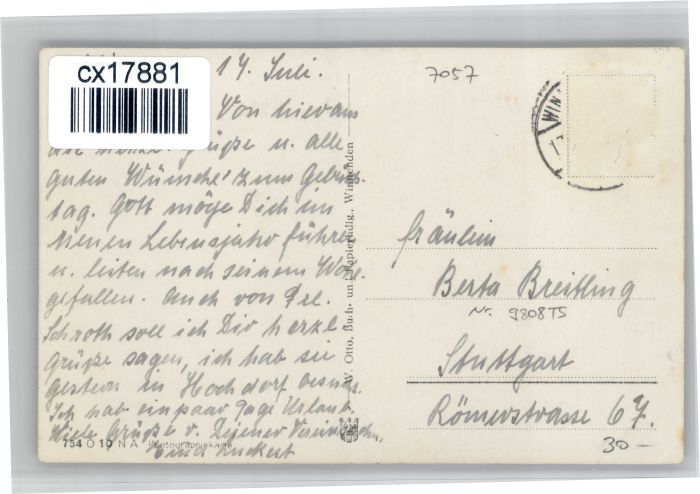 cx17881
17. Juli.
Von hier aus
Grüße u. alle
guten Wünsche zum Geburts-
tag. Gott möge Dich im
Neuen Lebensjahr führen
u. leiten nach seinem Wohl-
gefallen. Auch von Frl.
Schroth soll ich Dir herzl.
Grüße sagen, ich hab sie
gestern in Hochdorf
Ich hab ein paar Tage Urlaub.
Viele Grüße v. Deiner
754 O 10 N A Photographiekarte
W. Otto, Buch- und Papierhdlg., Winnenden
7057
WIN
Fräulein
Berta Breitling
Nr. 9808TS
Stuttgart
Römerstrasse 67.
30 –